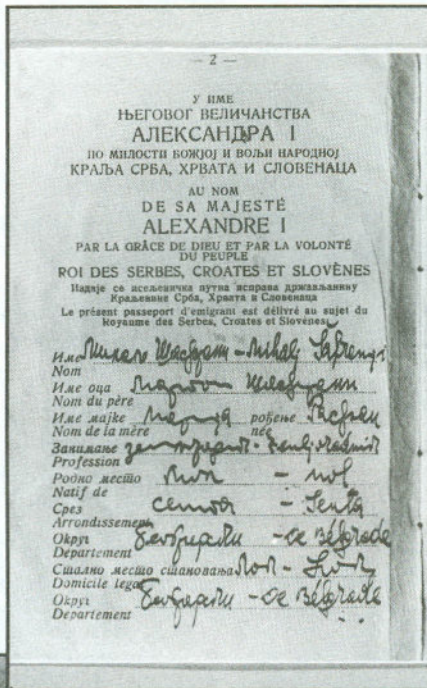 — 2 —
У ИМЕ
ЊЕГОВОГ ВЕЛИЧАНСТВА
АЛЕКСАНДРА I
ПО МИЛОСТИ БОЖЈОЈ И ВОЉИ НАРОДНОЈ
КРАЉА СРБА, ХРВАТА И СЛОВЕНАЦА
AU NOM
DE SA MAJESTÉ
ALEXANDRE I
PAR LA GRÂCE DE DIEU ET PAR LA VOLONTÉ
DU PEUPLE
ROI DES SERBES, CROATES ET SLOVÈNES
Издаје се исељеничка путна исправа држављанину
Краљевине Срба, Хрвата и Словенаца
Le présent passeport d'emigrant est délivré au sujet du
Royaume des Serbes, Croates et Slovènes
Име - Mihalj
Nom
Име оца
Nom du père
Име мајке рођене
Nom de la mère née
Занимање
Profession
Родно место Мол - Mol
Natif de
Срез Сента - Senta
Arrondissement
Округ Београдски - de Bélgrade
Departement
Стално место становања
Domicile legal
Округ Београдски - de Bélgrade
Departement